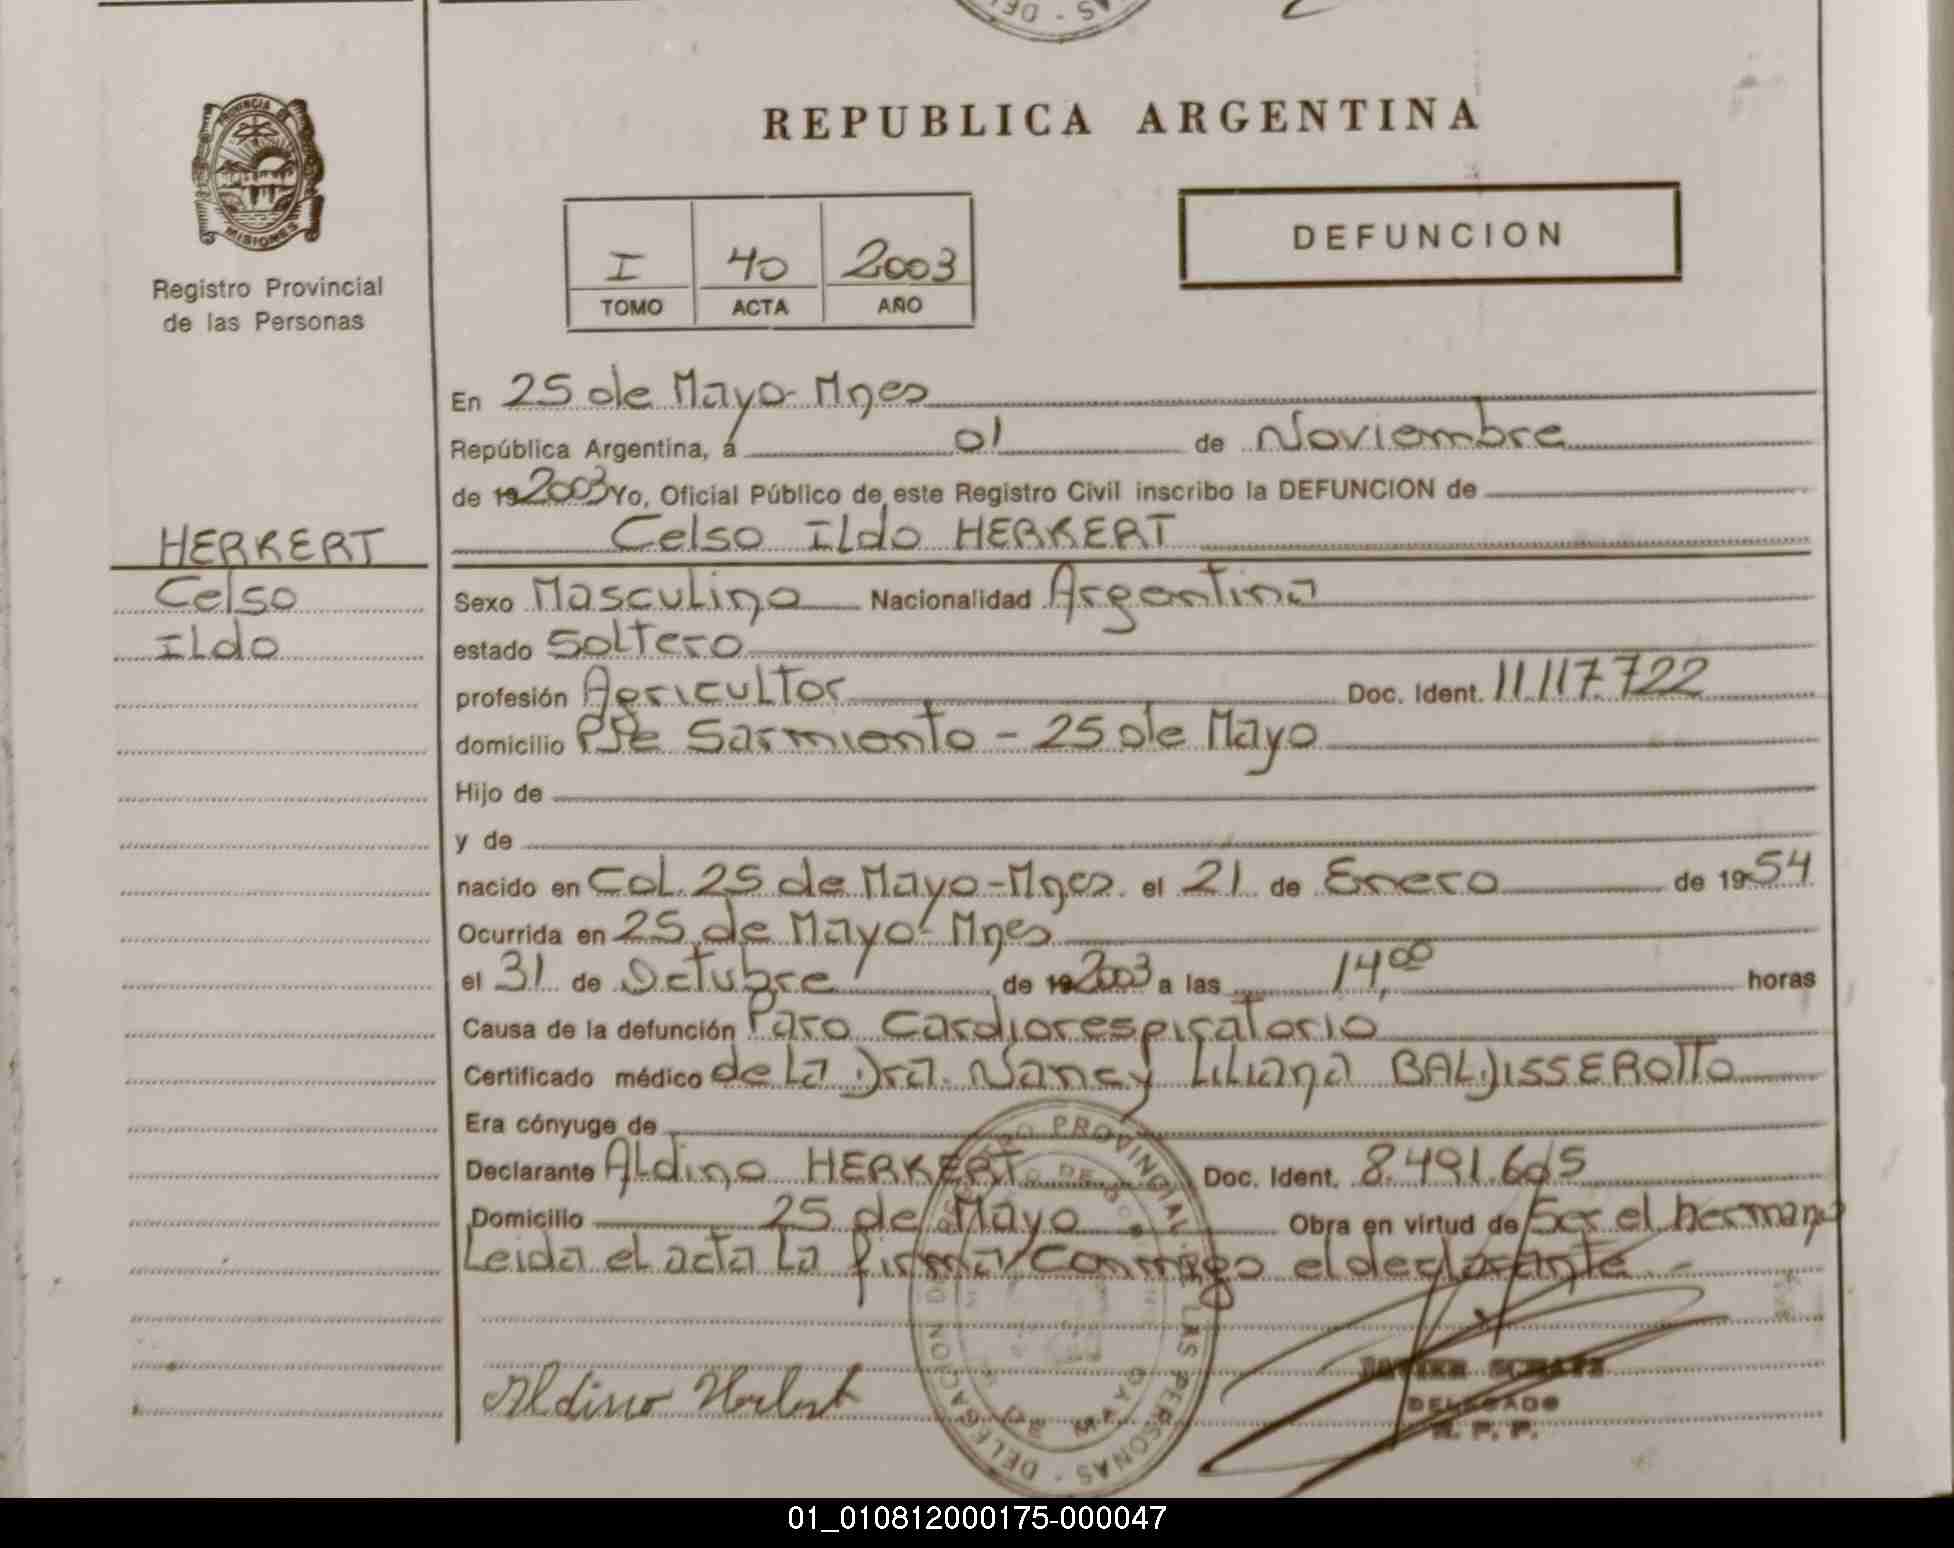 REPUBLICA ARGENTINA
PROVINCIA
MISIONES
Registro Provincial
de las Personas
I 40 2003
TOMO ACTA AÑO
DEFUNCION
En 25 de Mayo-Mnes
República Argentina, á 01 de Noviembre
de 19 2003 Yo, Oficial Público de este Registro Civil inscribo la DEFUNCION de
HERKERT
Celso
Ildo
Celso Ildo HERKERT
Sexo Masculino Nacionalidad Argentina
estado Soltero
profesión Agricultor Doc. Ident. 11.117.722
domicilio Pje Sarmiento - 25 de Mayo
Hijo de
y de
nacido en Col. 25 de Mayo-Mnes. el 21 de Enero de 1954
Ocurrida en 25 de Mayo-Mnes
el 31 de Octubre de 19 2003 a las 14,00 horas
Causa de la defunción Paro Cardiorespiratorio
Certificado médico de la Dra. Nancy Liliana BALDISSEROTTO
Era cónyuge de
Declarante Aldino HERKERT Doc. Ident. 8.491.605
Domicilio 25 de Mayo Obra en virtud de Ser el hermano
Leida el acta la firma conmigo el declarante.-
Aldino Herkert
PROVINCIAL LAS PERSONAS - DELEGACION
DE MAYO
DELEGADO
R. P. P.
01_010812000175-000047